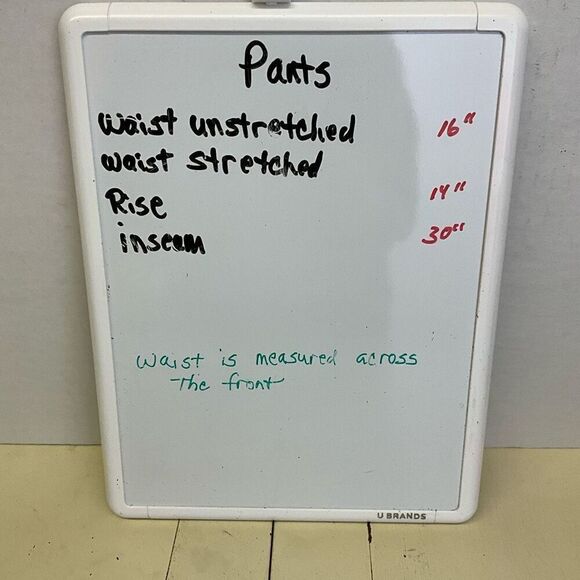 Pants
Waist unstretched 16"
waist stretched
Rise 14"
inseam 30"
Waist is measured across
The front
U BRANDS